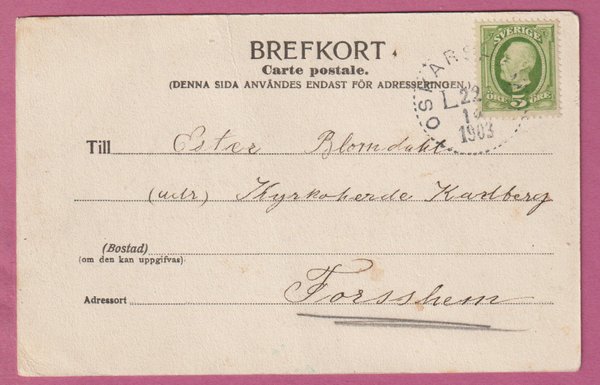 BREFKORT
Carte postale.
(DENNA SIDA ANVÄNDES ENDAST FÖR ADRESSERINGEN)
SVERIGE.
ÖRE 5 ÖRE
22
10
1903
Till Ester Blomdahl
(adr) Kyrkoherde Karlberg
(Bostad)
(om den kan uppgifvas)
Adressort Forsshem